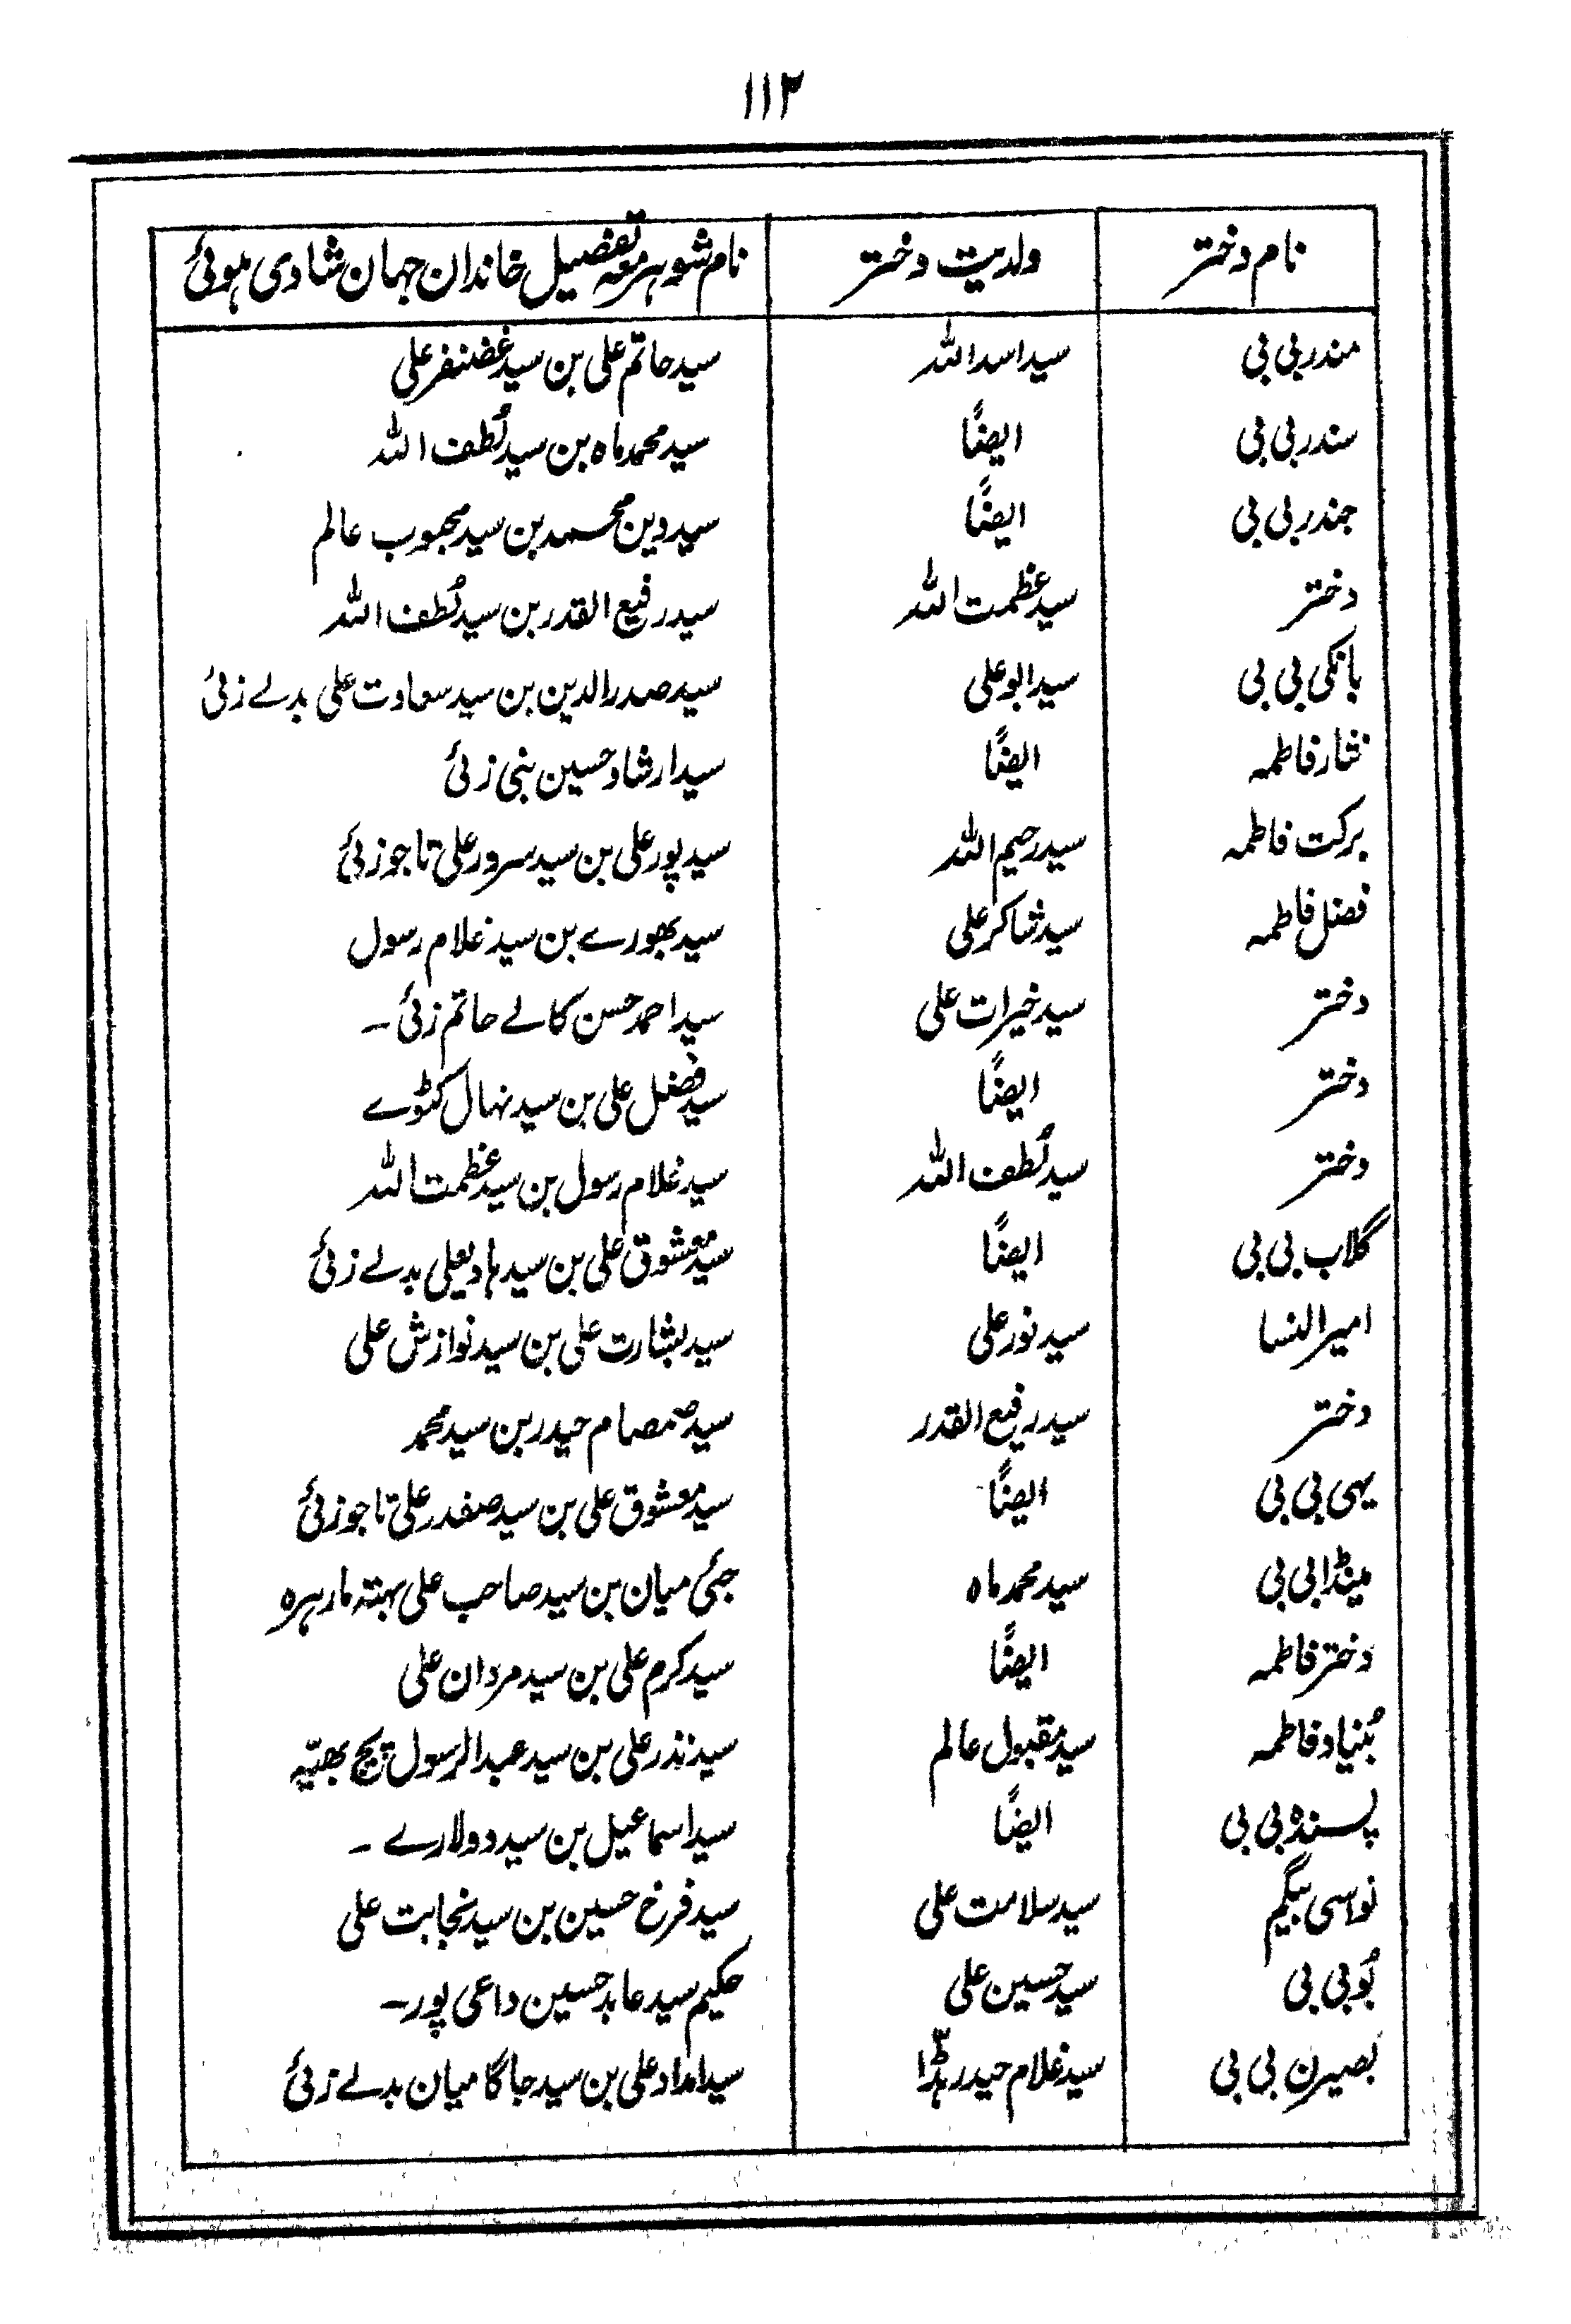 ۱۱۲
نام دختر ولدیت دختر نام شوہر معہ تفصیل خاندان جہان شادی ہوئی
مندر بی بی سید اسد اللہ سید حاتم علی بن سید غضنفر علی
سندر بی بی ایضًا سید محمد ماہ بن سید لُطف اللہ
چندر بی بی ایضًا سید دین محمد بن سید محبوب عالم
دختر سید عظمت اللہ سید رفیع القدر بن سید لُطف اللہ
بانکی بی بی سید ابو علی سید صدر الدین بن سید سعادت علی بدلے زئی
نثار فاطمہ ایضًا سید ارشاد حسین بنی زئی
برکت فاطمہ سید رحیم اللہ سید پور علی بن سید سرور علی تاجو زئی
فضل فاطمہ سید شاکر علی سید بھورے بن سید غلام رسول
دختر سید خیرات علی سید احمد حسن کالے حاتم زئی ۔
دختر ایضًا سید فضل علی بن سید نہال کٹوے
دختر سید لُطف اللہ سید غلام رسول بن سید عظمت اللہ
گلاب بی بی ایضًا سید معشوق علی بن سید ہادیعلی بدلے زئی
امیر النسا سید نور علی سید بشارت علی بن سید نوازش علی
دختر سید رفیع القدر سید صمصام حیدر بن سید محمد
یہی بی بی ایضًا سید معشوق علی بن سید صفدر علی تاجو زئی
مینڈا بی بی سید محمد ماہ جئی میان بن سید صاحب علی بہتہ مارہرہ
دختر فاطمہ ایضًا سید کرم علی بن سید مردان علی
بُنیاد فاطمہ سید مقبول عالم سید نذر علی بن سید عبد الرسول پچ بھیّہ
پسندہ بی بی ایضًا سید اسماعیل بن سید دولارے ۔
نواسی بیگم سید سلامت علی سید فرخ حسین بن سید نجابت علی
بُو بی بی سید حسین علی حکیم سید عابد حسین داعی پور ۔
بصیرن بی بی سید غلام حیدر ہڑّا سید امداد علی بن سید جاگا میان بدلے زئی